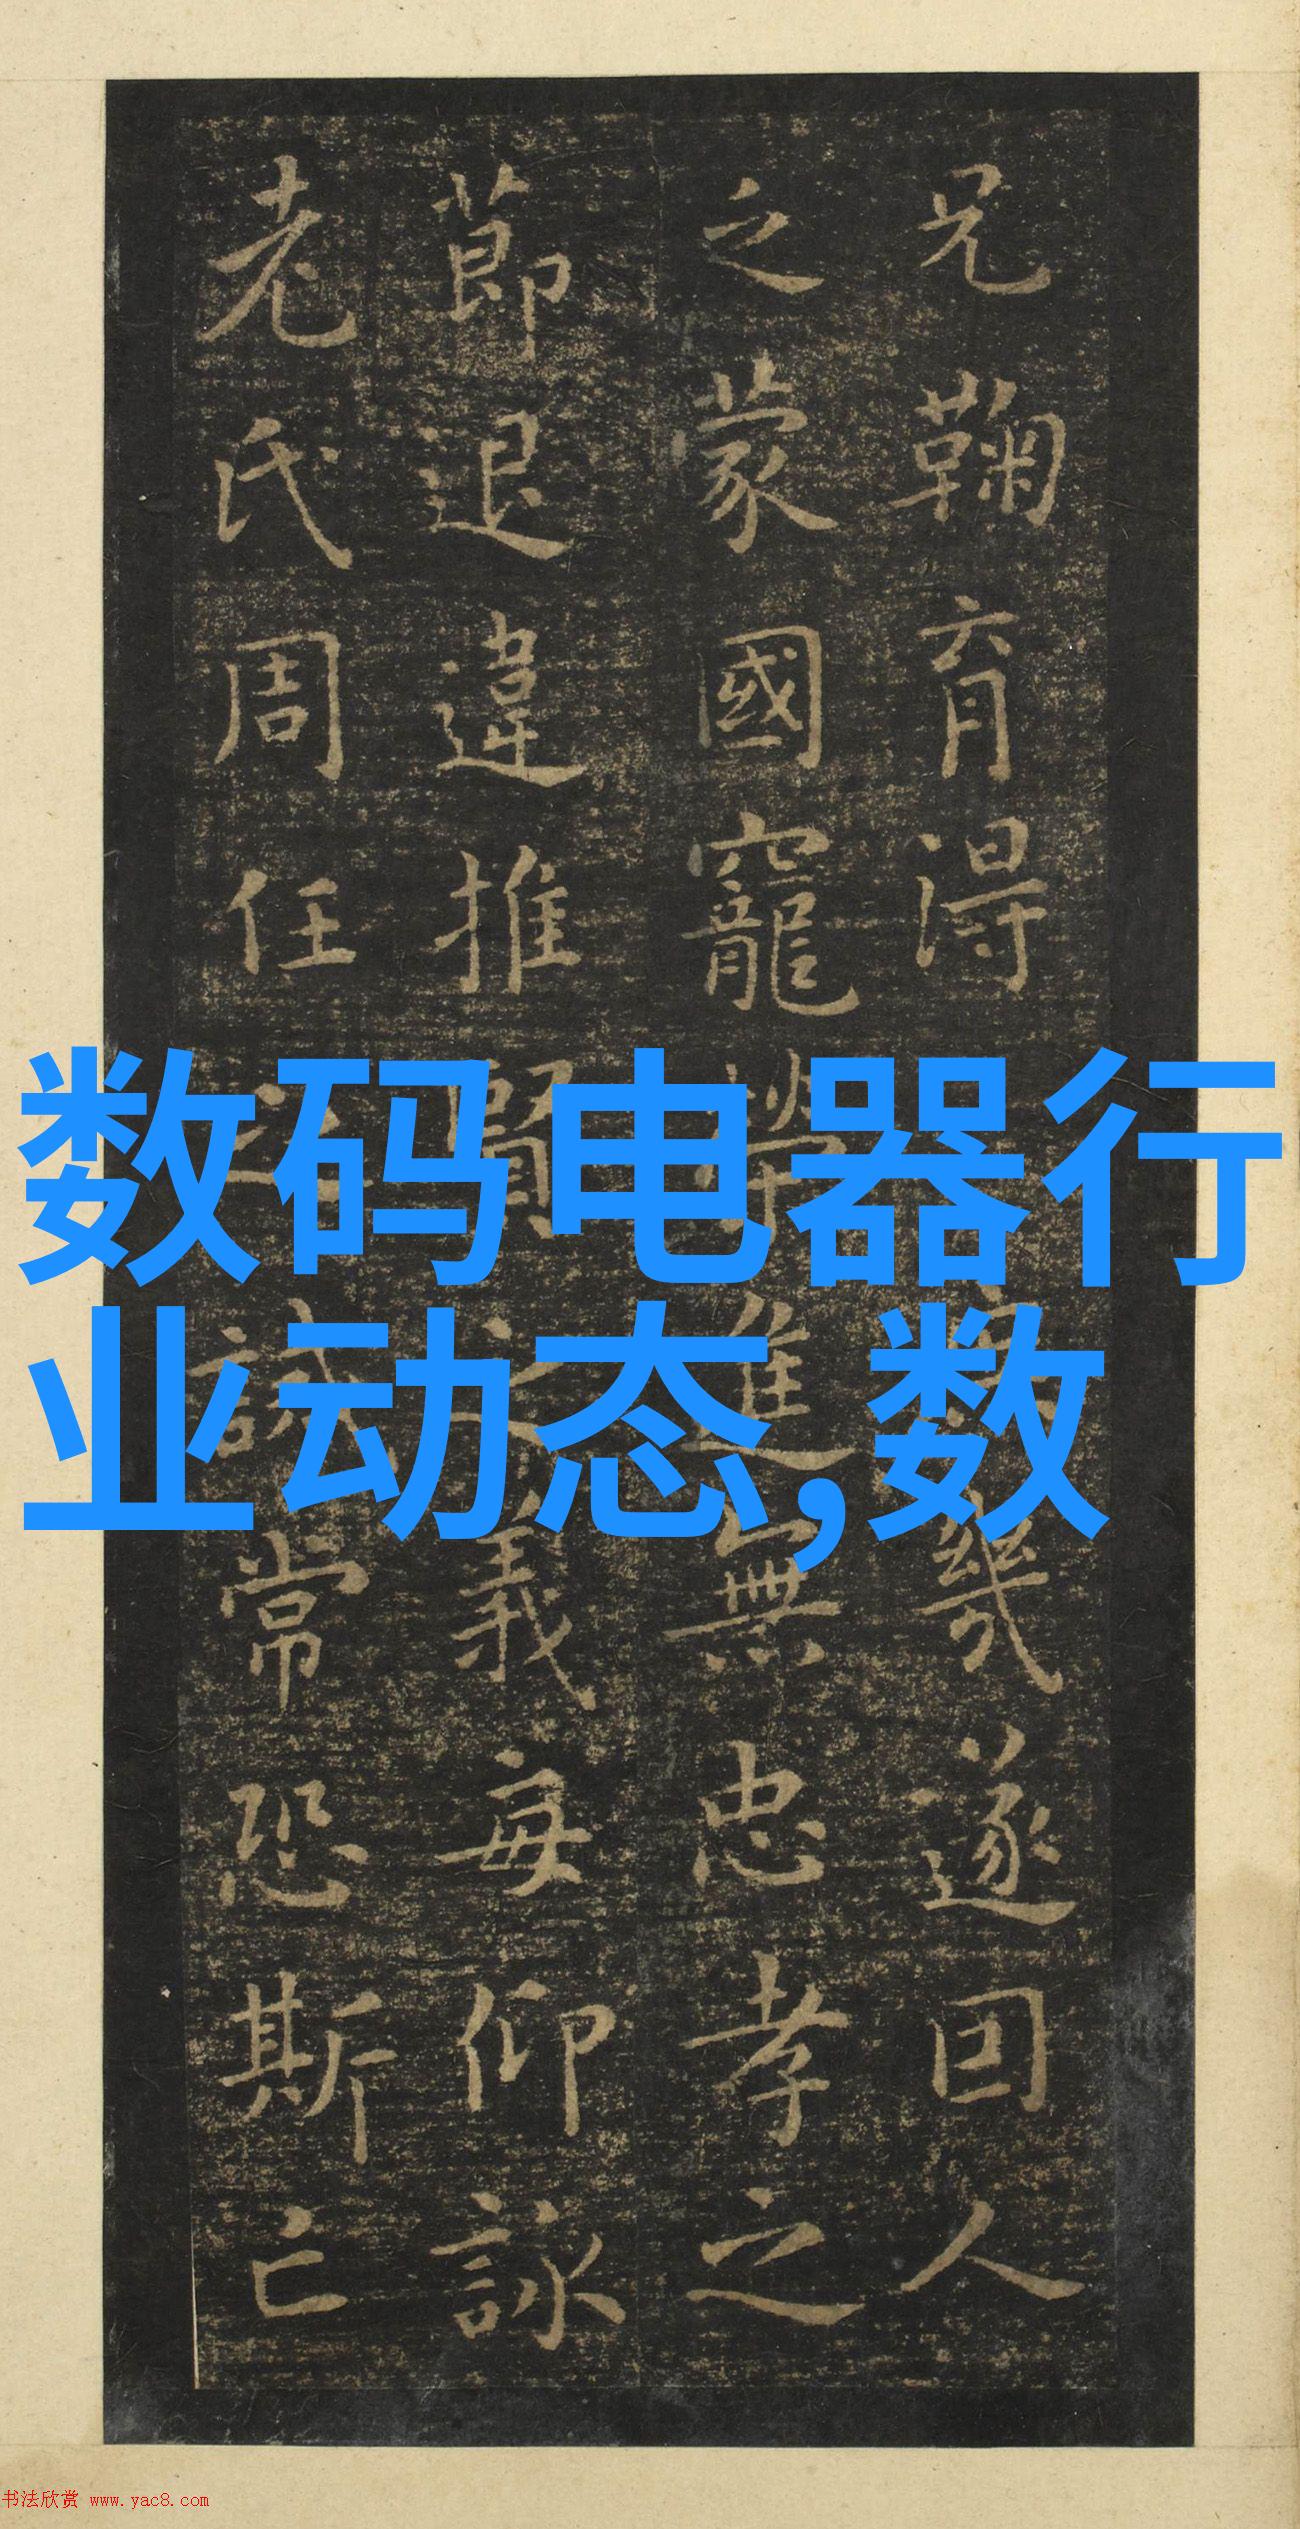 兄鞠育得幾遂因人
乏蒙國寵榮進無忠孝之
節退違推賢之義每仰詠
老氏周任之誡常恐斯亡
数码电器行
业动态,数
书法欣赏 www.yac8.com